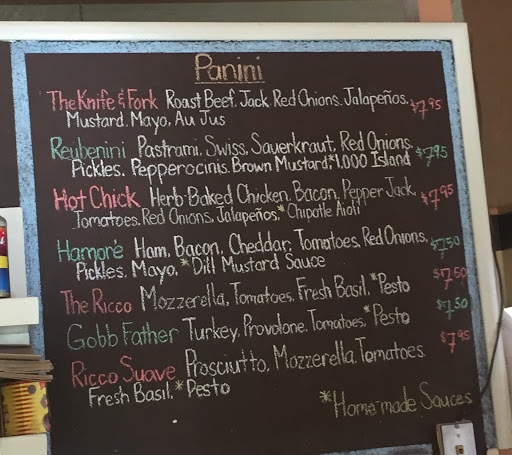 Panini
The Knife & Fork Roast Beef, Jack, Red Onions, Jalapeños, $7.95
Mustard, Mayo, Au Jus
Reubenini Pastrami, Swiss, Sauerkraut, Red Onions, $7.95
Pickles, Pepperocinis, Brown Mustard, *1,000 Island
Hot Chick Herb Baked Chicken, Bacon, Pepper Jack, $7.95
Tomatoes, Red Onions, Jalapeños, *Chipotle Aioli
Hamore's Ham, Bacon, Cheddar, Tomatoes, Red Onions, $7.50
Pickles, Mayo, *Dill Mustard Sauce
The Ricco Mozzerella, Tomatoes, Fresh Basil, *Pesto $7.50
Gobb Father Turkey, Provolone, Tomatoes, *Pesto $7.50
Ricco Suave Prosciutto, Mozzerella, Tomatoes $7.95
Fresh Basil, *Pesto
*Home-made Sauces